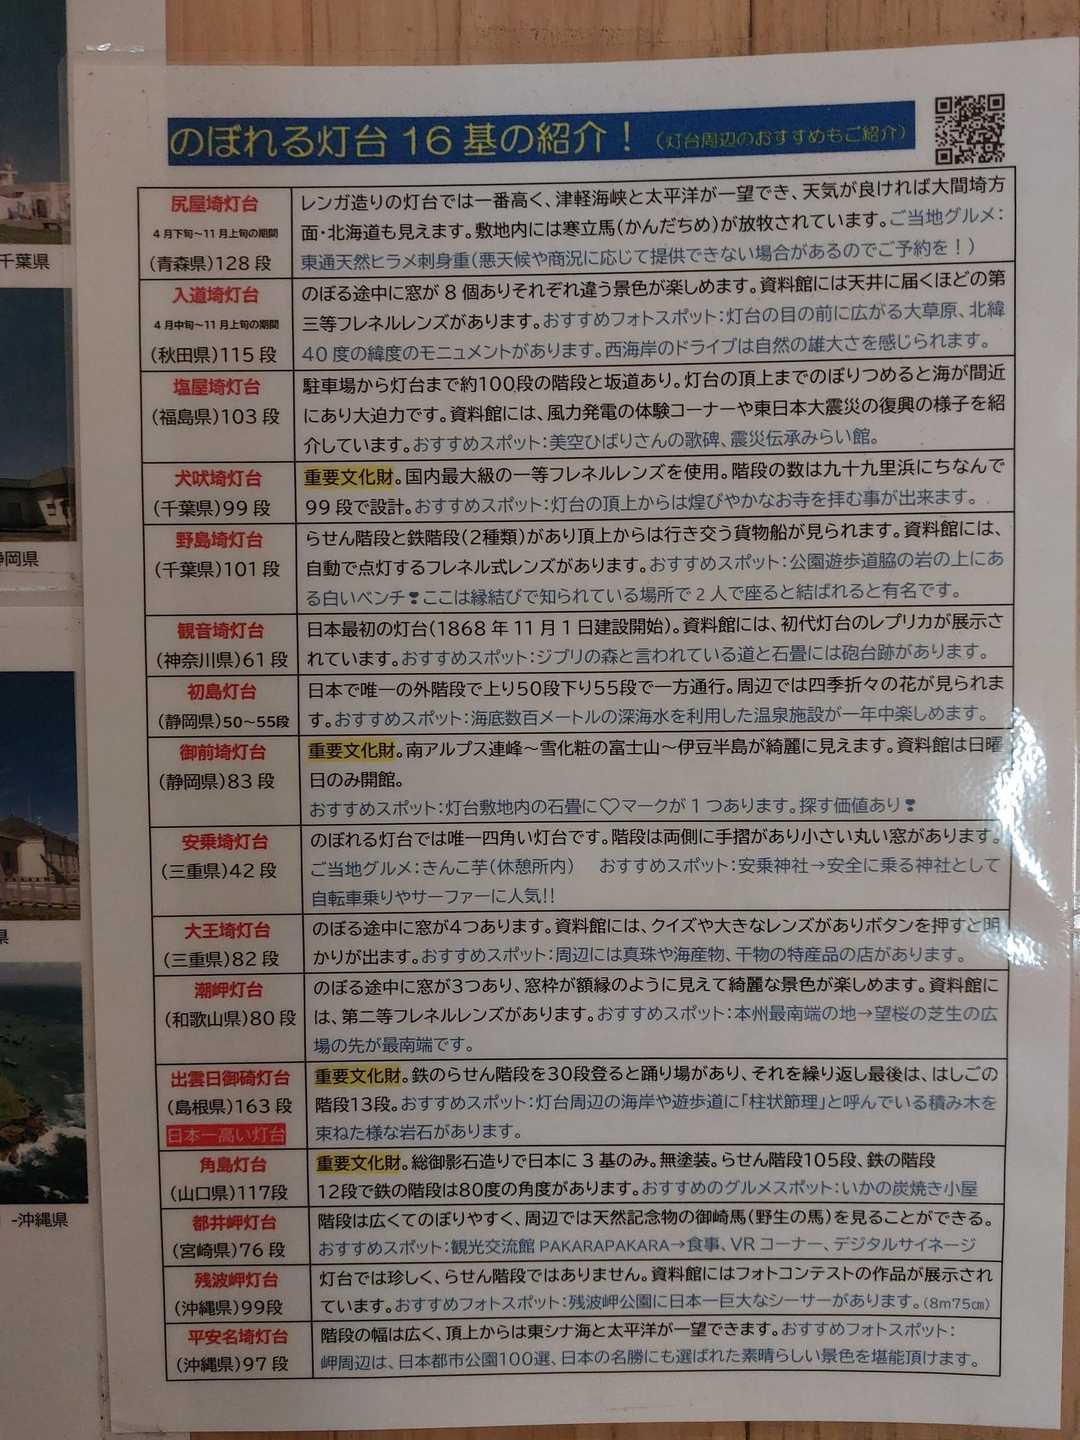 のぼれる灯台 16 基の紹介！（灯台周辺のおすすめもご紹介）
尻屋埼灯台
4月下旬～11月上旬の期間
(青森県)128 段
レンガ造りの灯台では一番高く、津軽海峡と太平洋が一望でき、天気が良ければ大間埼方
面・北海道も見えます。敷地内には寒立馬(かんだちめ)が放牧されています。ご当地グルメ：
東通天然ヒラメ刺身重(悪天候や商況に応じて提供できない場合があるのでご予約を！)
入道埼灯台
4月中旬～11月上旬の期間
(秋田県)115 段
のぼる途中に窓が 8 個ありそれぞれ違う景色が楽しめます。資料館には天井に届くほどの第
三等フレネルレンズがあります。おすすめフォトスポット：灯台の目の前に広がる大草原、北緯
40 度の緯度のモニュメントがあります。西海岸のドライブは自然の雄大さを感じられます。
塩屋埼灯台
(福島県)103 段
駐車場から灯台まで約100段の階段と坂道あり。灯台の頂上までのぼりつめると海が間近
にあり大迫力です。資料館には、風力発電の体験コーナーや東日本大震災の復興の様子を紹
介しています。おすすめスポット：美空ひばりさんの歌碑、震災伝承みらい館。
犬吠埼灯台
(千葉県)99 段
重要文化財。国内最大級の一等フレネルレンズを使用。階段の数は九十九里浜にちなんで
99 段で設計。おすすめスポット：灯台の頂上からは煌びやかなお寺を拝む事が出来ます。
野島埼灯台
(千葉県)101 段
らせん階段と鉄階段(2種類)があり頂上からは行き交う貨物船が見られます。資料館には、
自動で点灯するフレネル式レンズがあります。おすすめスポット：公園遊歩道脇の岩の上にあ
る白いベンチ❣ここは縁結びで知られている場所で 2 人で座ると結ばれると有名です。
観音埼灯台
(神奈川県)61 段
日本最初の灯台(1868 年 11 月 1 日建設開始)。資料館には、初代灯台のレプリカが展示さ
れています。おすすめスポット：ジブリの森と言われている道と石畳には砲台跡があります。
初島灯台
(静岡県)50～55段
日本で唯一の外階段で上り50段下り55段で一方通行。周辺では四季折々の花が見られま
す。おすすめスポット：海底数百メートルの深海水を利用した温泉施設が一年中楽しめます。
御前埼灯台
(静岡県)83 段
重要文化財。南アルプス連峰～雪化粧の富士山～伊豆半島が綺麗に見えます。資料館は日曜
日のみ開館。
おすすめスポット：灯台敷地内の石畳に♡マークが 1 つあります。探す価値あり❣
安乗埼灯台
(三重県)42 段
のぼれる灯台では唯一四角い灯台です。階段は両側に手摺があり小さい丸い窓があります。
ご当地グルメ：きんこ芋(休憩所内)　おすすめスポット：安乗神社→安全に乗る神社として
自転車乗りやサーファーに人気!!
大王埼灯台
(三重県)82 段
のぼる途中に窓が4つあります。資料館には、クイズや大きなレンズがありボタンを押すと明
かりが出ます。おすすめスポット：周辺には真珠や海産物、干物の特産品の店があります。
潮岬灯台
(和歌山県)80 段
のぼる途中に窓が3つあり、窓枠が額縁のように見えて綺麗な景色が楽しめます。資料館に
は、第二等フレネルレンズがあります。おすすめスポット：本州最南端の地→望桜の芝生の広
場の先が最南端です。
出雲日御碕灯台
(島根県)163 段
日本一高い灯台
重要文化財。鉄のらせん階段を30段登ると踊り場があり、それを繰り返し最後は、はしごの
階段13段。おすすめスポット：灯台周辺の海岸や遊歩道に「柱状節理」と呼んでいる積み木を
束ねた様な岩石があります。
角島灯台
(山口県)117段
重要文化財。総御影石造りで日本に 3 基のみ。無塗装。らせん階段105段、鉄の階段
12段で鉄の階段は80度の角度があります。おすすめのグルメスポット：いかの炭焼き小屋
都井岬灯台
(宮崎県)76 段
階段は広くてのぼりやすく、周辺では天然記念物の御崎馬(野生の馬)を見ることができる。
おすすめスポット：観光交流館 PAKARAPAKARA→食事、VR コーナー、デジタルサイネージ
残波岬灯台
(沖縄県)99段
灯台では珍しく、らせん階段ではありません。資料館にはフォトコンテストの作品が展示され
ています。おすすめフォトスポット：残波岬公園に日本一巨大なシーサーがあります。(8m75㎝)
平安名埼灯台
(沖縄県)97 段
階段の幅は広く、頂上からは東シナ海と太平洋が一望できます。おすすめフォトスポット：
岬周辺は、日本都市公園100選、日本の名勝にも選ばれた素晴らしい景色を堪能頂けます。
千葉県
静岡県
県
-沖縄県